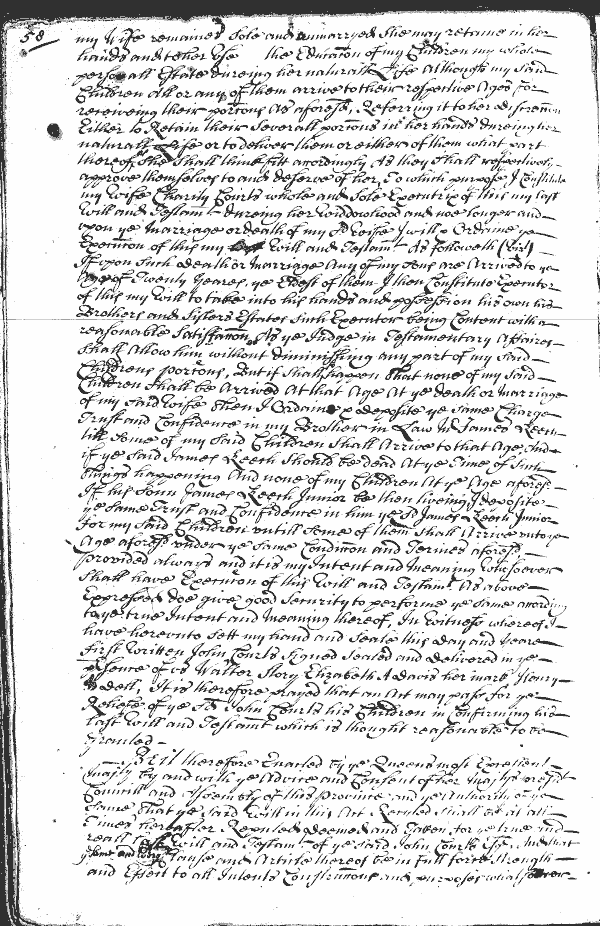 58
my Wife remaines Sole and unmarryed She may retaine in her
hands and to her Use the Education of my Children my whole
personall Estate dureing her naturall Life Although my Said
Children All or any of them arrive to their respective Ages for
receiveing their porcons As aforesd, Referring it to her discrecon
Either to Retain their Severall porcons in her hands dureing her
naturall Life or to deliver them or either of them what part
thereof She Shall think fitt accordingly As they Shall respectively
approve themselves to and deserve of her, To which purpose I Constitute
my Wife Charity Courts whole and Sole Executrix of this my last
Will and Testamt. dureing her Widdowhood and noe longer and
upon ye Marriage or death of my Sd Wife I will & Ordaine ye
Execution of this my Will and Testamt. As followeth (Vizt)
If upon Such death or Marriage Any of my Sons are Arrived to ye
Age of Twenty Yeares, ye Eldest of them I then Constitute Executor
of this my Will to take into his hands and possession his own his
Brothers and Sisters Estates Such Executor being Content with a
reasonable Satisfaccon As ye Judge in Testamentary Affaires
Shall Allow him without diminishing any part of my Said
Childrens porcons, But if Shall happen That none of my Said
Children Shall be Arrived At that Age At ye death or Marriage
of my Said Wife Then I Ordaine & deposite ye Same Charge
Trust and Confidence in my Brother in Law Mr James Keech
till Some of my Said Children Shall Arrive to that Age, And
if ye Said James Keech Should be dead At ye Time of Such
things happening And none of my Children At ye Age aforesd
If his Sonn James Keech Junior be then liveing I deposite
ye Same Trust and Confidence in him ye Sd James Keech Junior
for my Said Children untill Some of them Shall Arrive unto ye
Age aforesd under ye Same Condicon and Termes aforesd
provided always and it is my Intent and Meaning Whosoever
Shall have Execucon of this Will and Testamt. As above
Expressed doe give good Security to performe ye Same according
to ye true Intent and Meaning hereof, In Witness whereof I
have hereunto Sett my hand and Seale this day and Yeare
first Written John Courts Signed Sealed and delivered in ye
presence of us Walter Story Elizabeth Adams her mark Henry
It is therefore prayed that an Act may pass for ye
Reliefe of ye Sd John Courts his Children in Confirming his
last Will and Testamt which is thought reasonable to be
Granted
Be it therefore Enacted by ye Queens most Excellent
Majty by and with ye Advice and Consent of her Majtys presdt
Councill and Assembly of this Province and ye Authority of ye
Same That ye said Will in this Act Recited shall be at all
Times hereafter Reputed deemed and Taken for ye true and
reall Last Will and Testamt of ye said John Courts Esq. And that
Clause and Article thereof be in full force Strength
and Effect to all Intents Construccons and purposes whatsoever